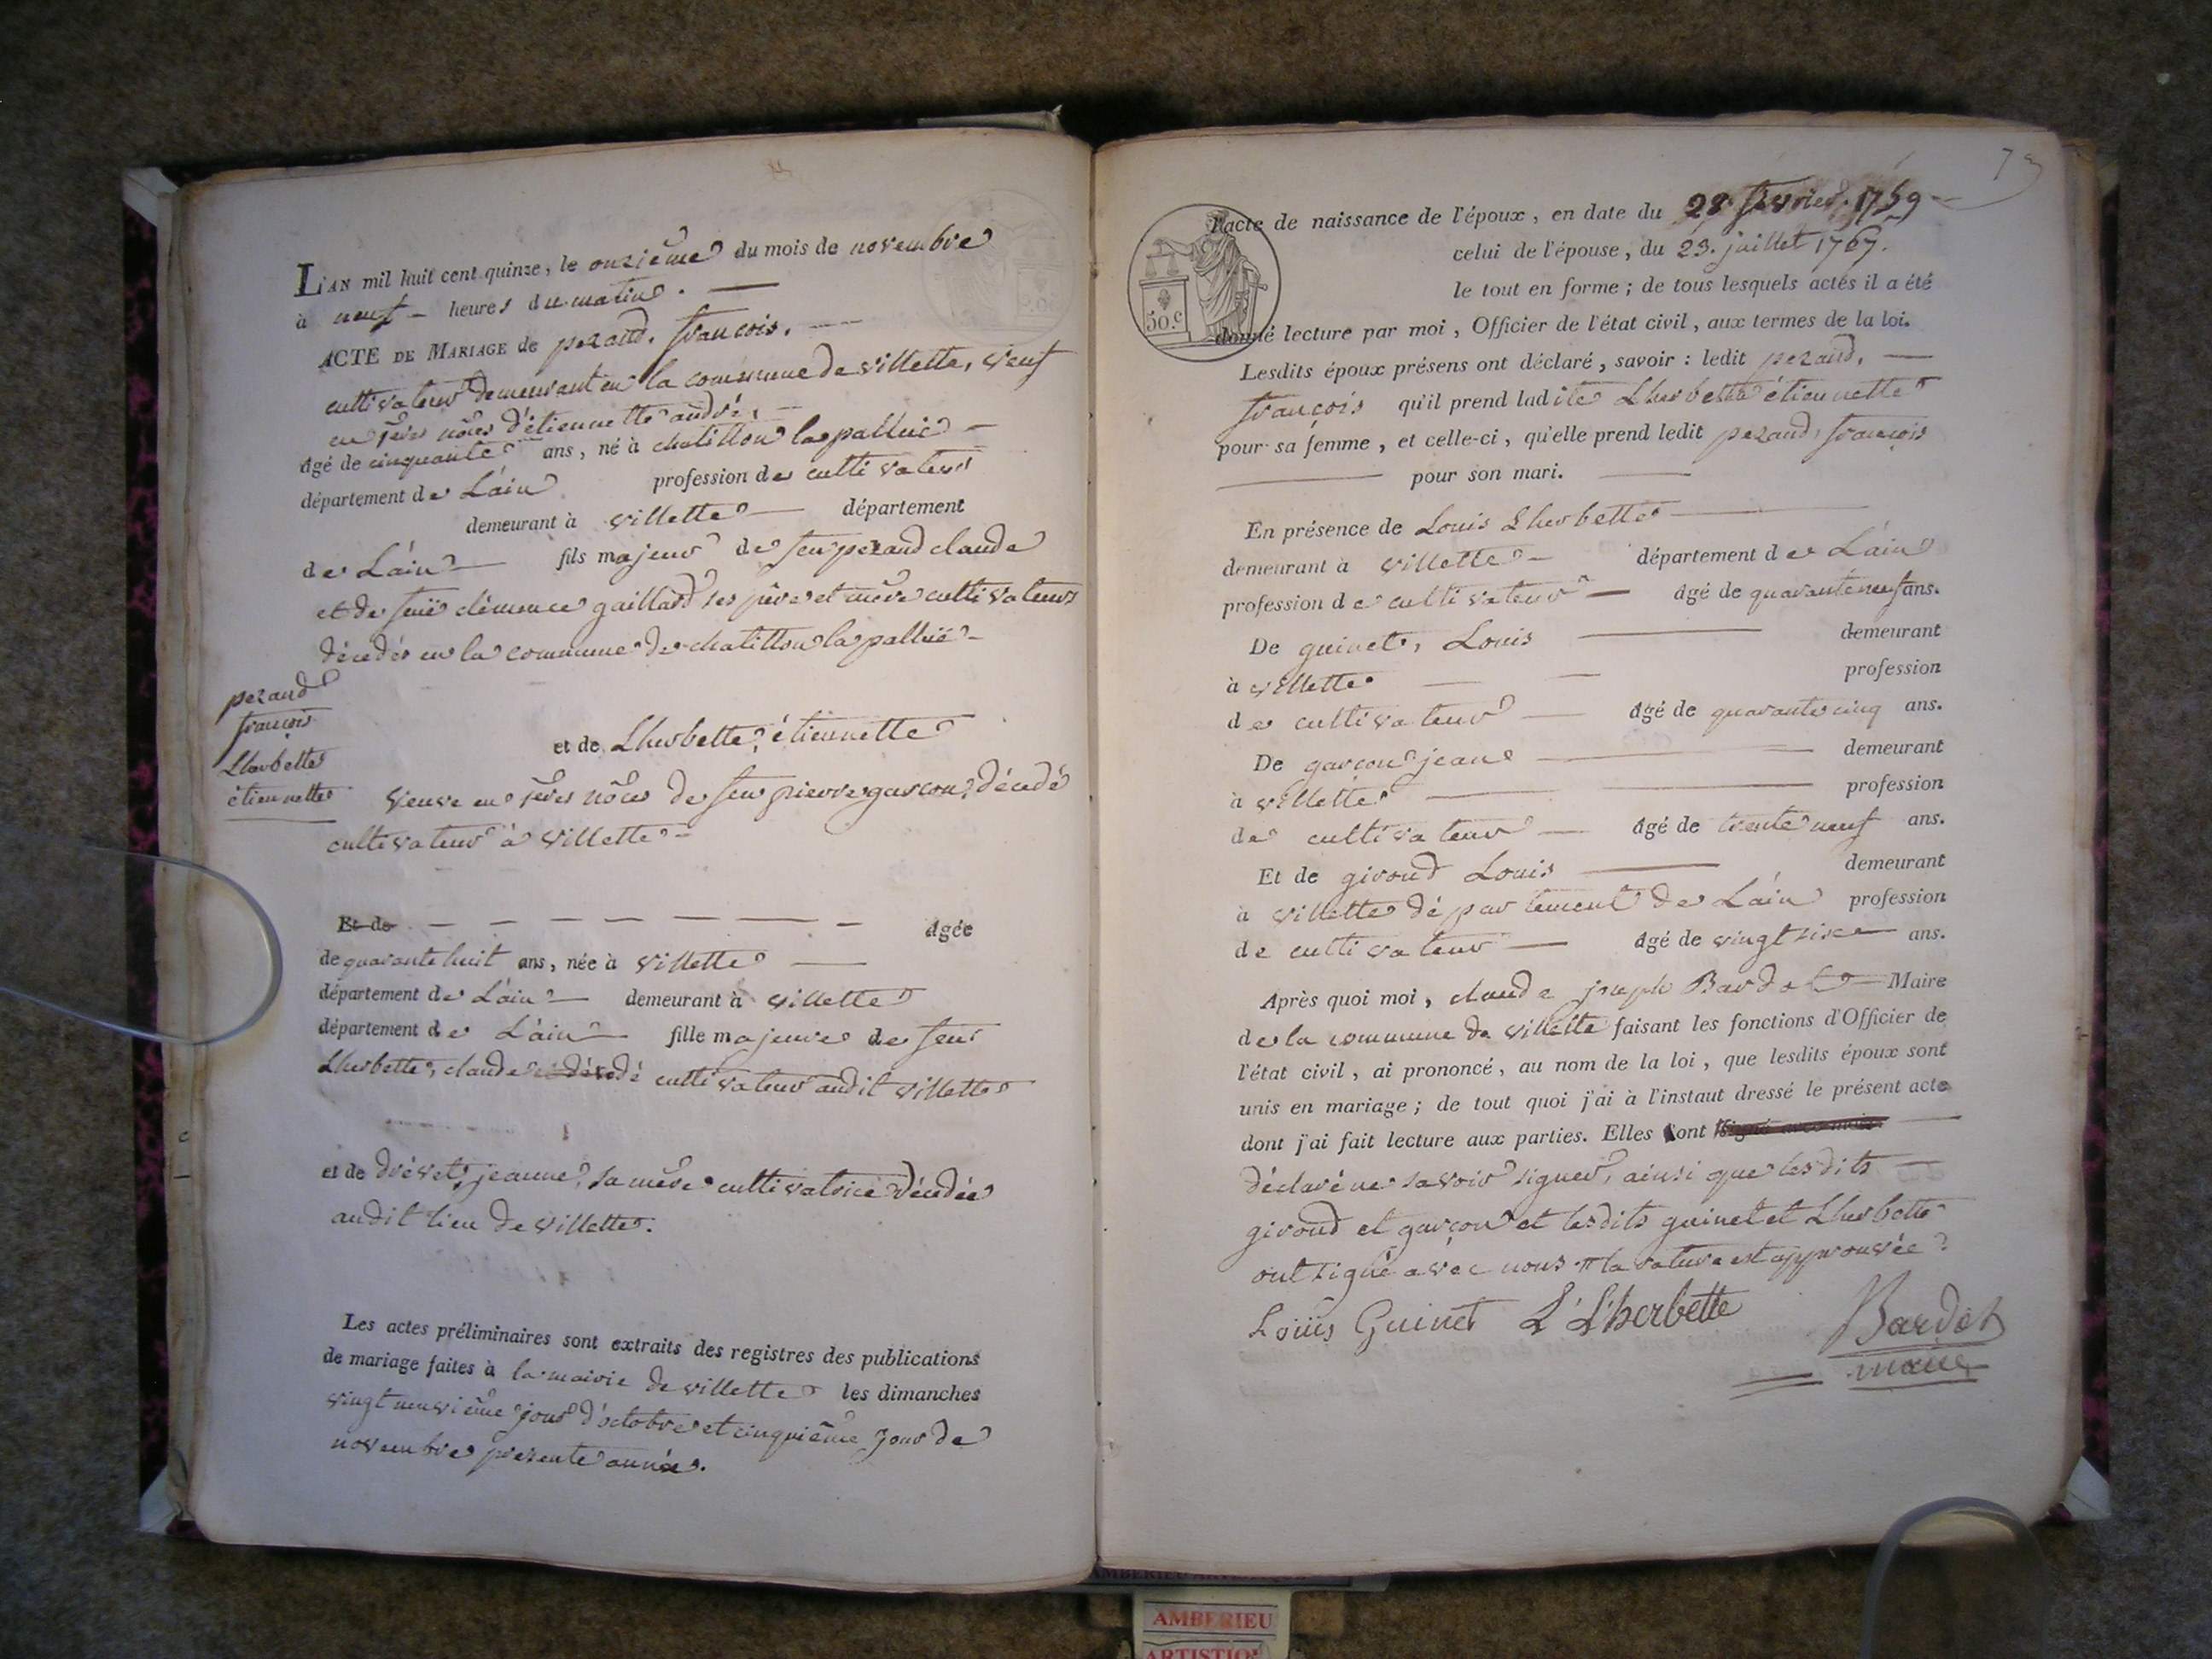 L'AN mil huit cent quinze, le onzième du mois de novembre
à neuf heures du matin.
ACTE DE MARIAGE de pezand, françois,
cultivateur demeurant en la commune de villette, veuf
en 1eres nôces d'étiennette andré,
âgé de cinquante ans, né à chatillon la palluie
département de L'ain profession de cultivateur
demeurant à villette département
de L'ain fils majeur de feu pezand claude
et de feüe clémence gaillard ses père et mère cultivateurs
décedés en la commune de chatillon la palluë
pezand
françois
Lherbette
étiennette
et de Lherbette, étiennette
veuve en 1eres nôces de feu pierre garçon, décedé
cultivateur à villette
Et de âgée
de quarante huit ans, née à villette
département de L'ain demeurant à villette
département de L'ain fille majeure de feu
Lherbette, claude décedé cultivateur audit villette
et de drévet, jeanne, sa mère cultivatrice décedée
audit lieu de villette.
Les actes préliminaires sont extraits des registres des publications
de mariage faites à la mairie de villette les dimanches
vingt neuvième jour d'octobre et cinquième jour de
novembre presente année.
73
l'acte de naissance de l'époux, en date du 28 février 1759
celui de l'épouse, du 23. juillet 1767.
le tout en forme; de tous lesquels actes il a été
donné lecture par moi, Officier de l'état civil, aux termes de la loi.
50.c
Lesdits époux présens ont déclaré, savoir : ledit pezand,
françois qu'il prend ladite Lherbette étiennette
pour sa femme, et celle-ci, qu'elle prend ledit pezand, françois
pour son mari.
En présence de Louis Lherbette
demeurant à villette département de L'ain
profession de cultivateur âgé de quarante neuf ans.
De guinet, Louis demeurant
à villette profession
de cultivateur âgé de quarante cinq ans.
De garçon jean demeurant
à villette profession
de cultivateur âgé de trente neuf ans.
Et de giroud Louis demeurant
à villette département de L'ain profession
de cultivateur âgé de vingt six ans.
Après quoi moi, claude joseph Bardet Maire
de la commune de villette faisant les fonctions d'Officier de
l'état civil, ai prononcé, au nom de la loi, que lesdits époux sont
unis en mariage; de tout quoi j'ai à l'instant dressé le présent acte
dont j'ai fait lecture aux parties. Elles ont signé avec moi
déclaré ne savoir signer, ainsi que lesdits
giroud et garçon et lesdits guinet et Lherbette
ont signé avec nous la rature est approuvée
Loüis Guinet L Lherbette Bardet
maire
AMBERIEU